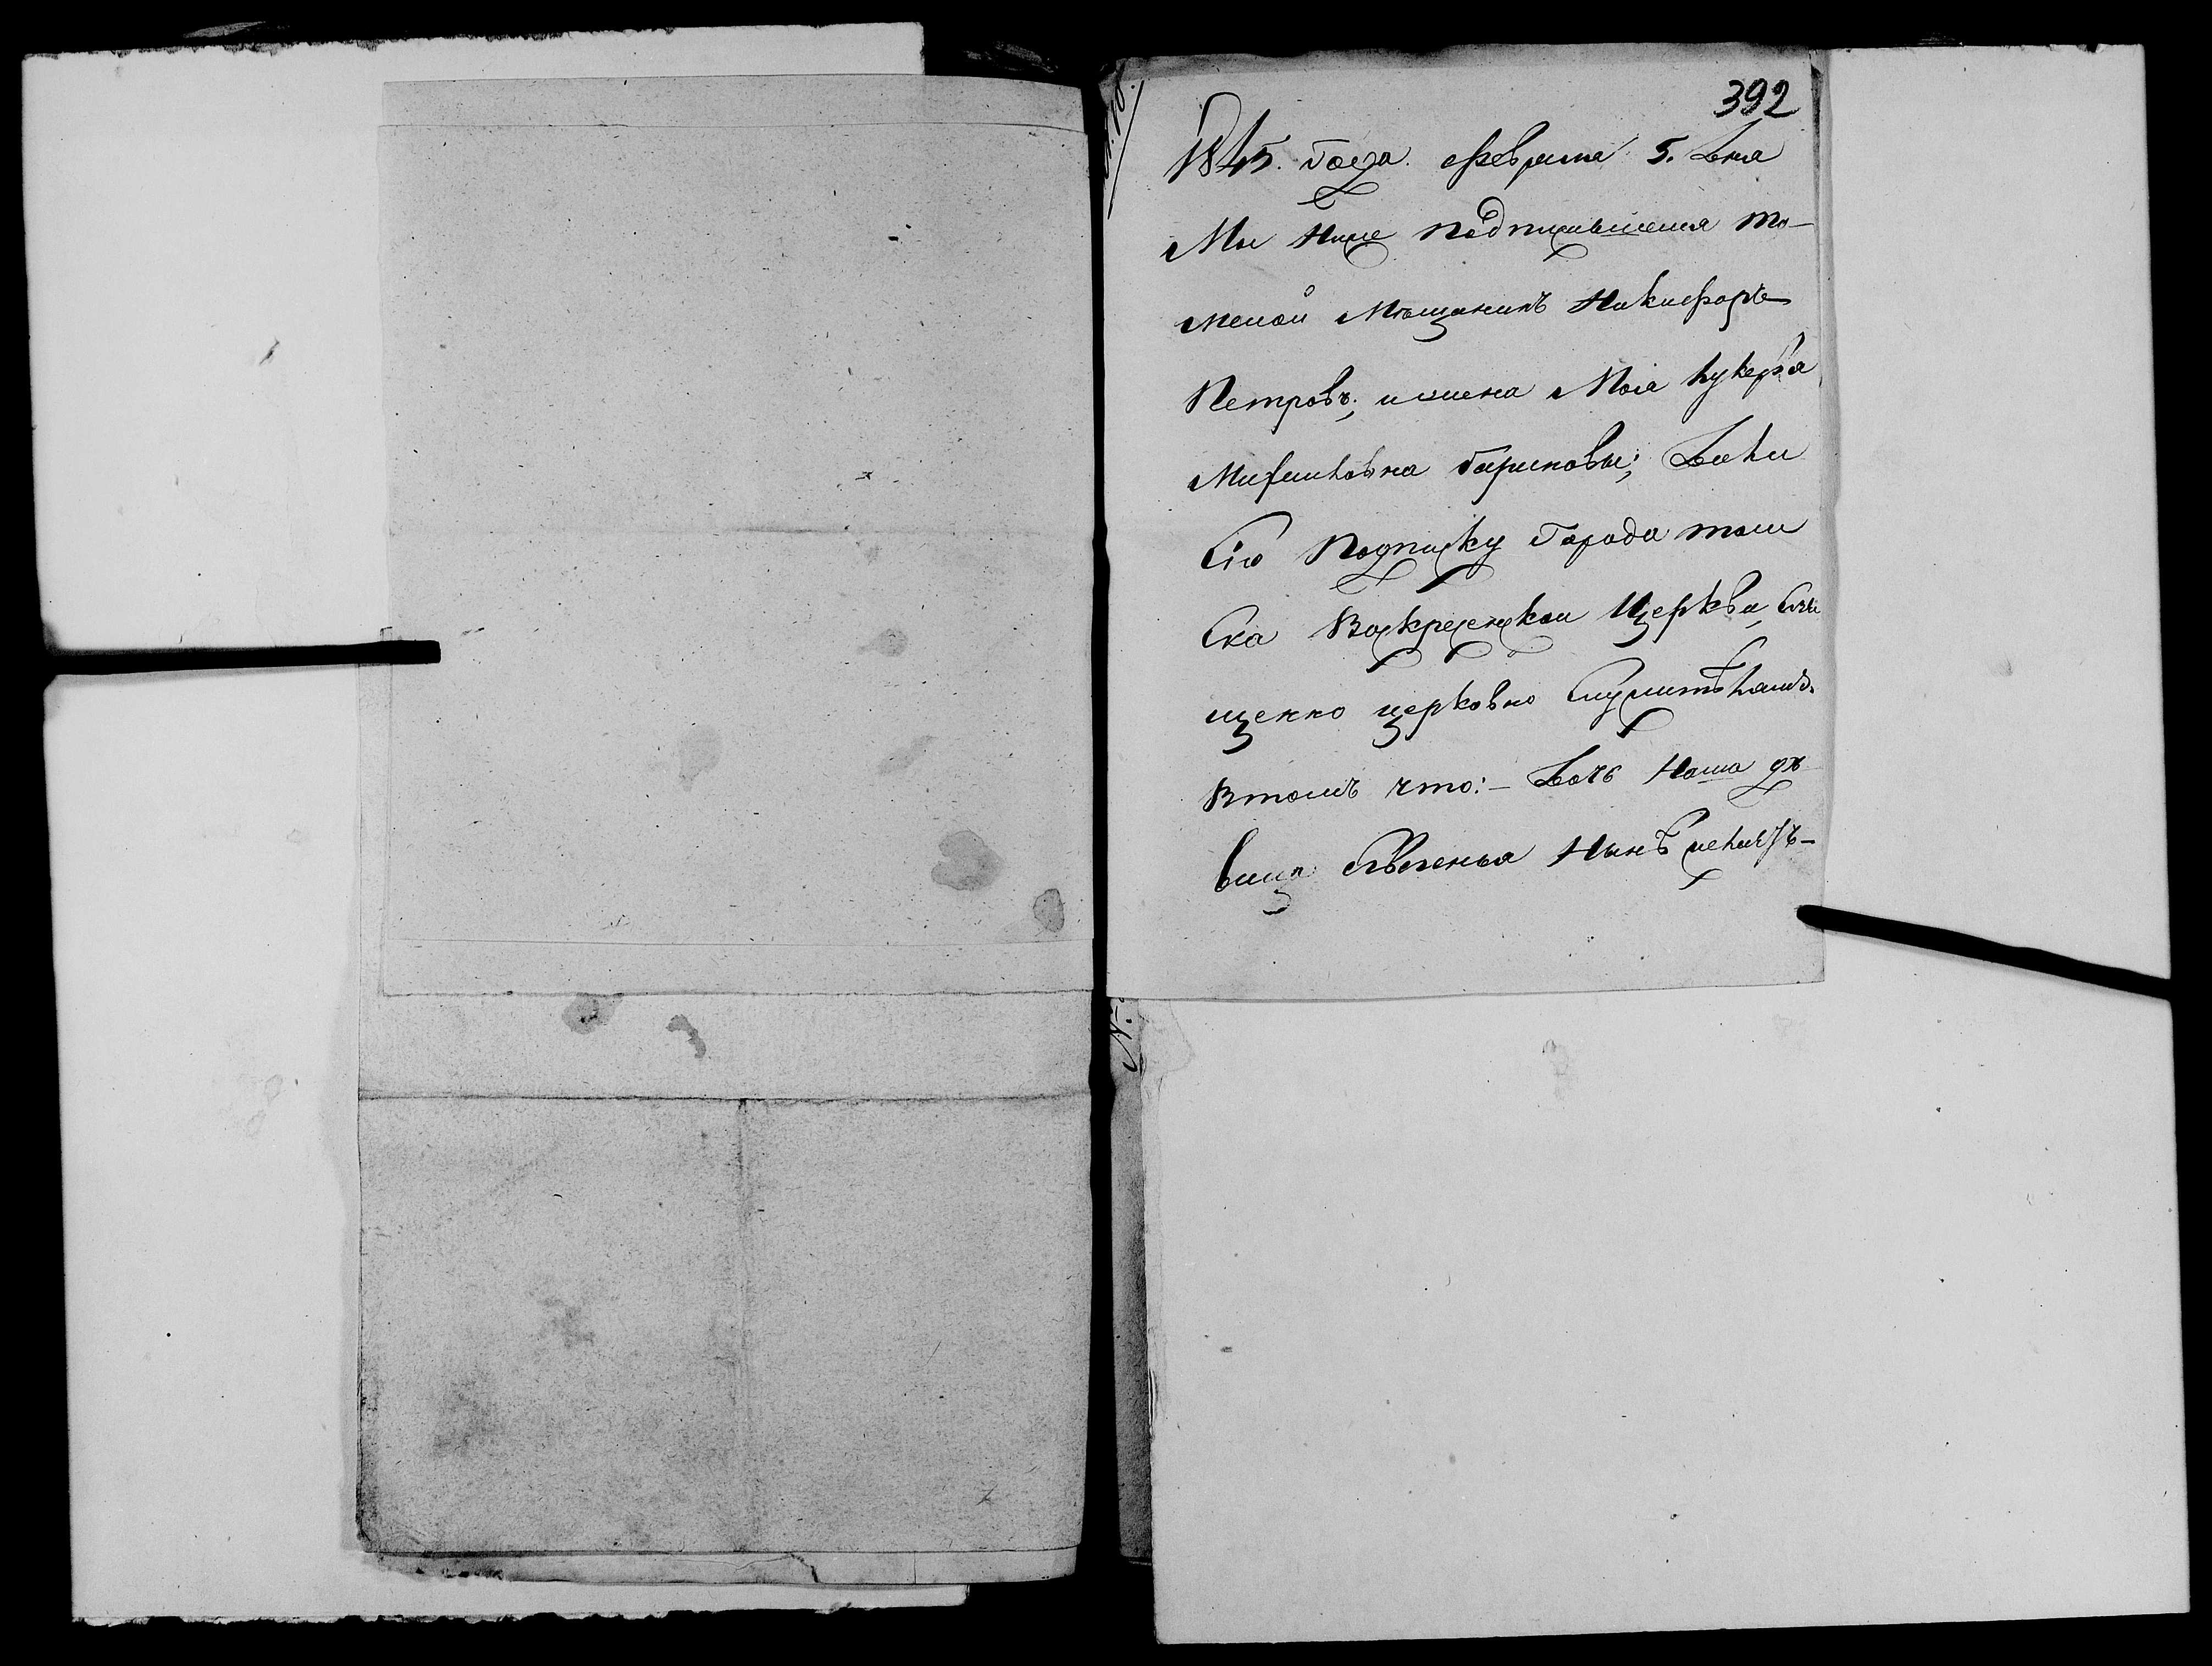 392
1845. Года. февраля 5. Дня
Мы Ниже подписавшешся то-
мской Мѣщанинъ Никифоръ
Петровъ; и жена Моя Лукерья
Михайловна Гариновы; Дали
Сію Подписку Города том
Ска Воскресенской Церкви, Свя
щенно церковно Служителямъ
Втомъ что:- Дочь Наша дѣ
вица Евгенья Нынѣ